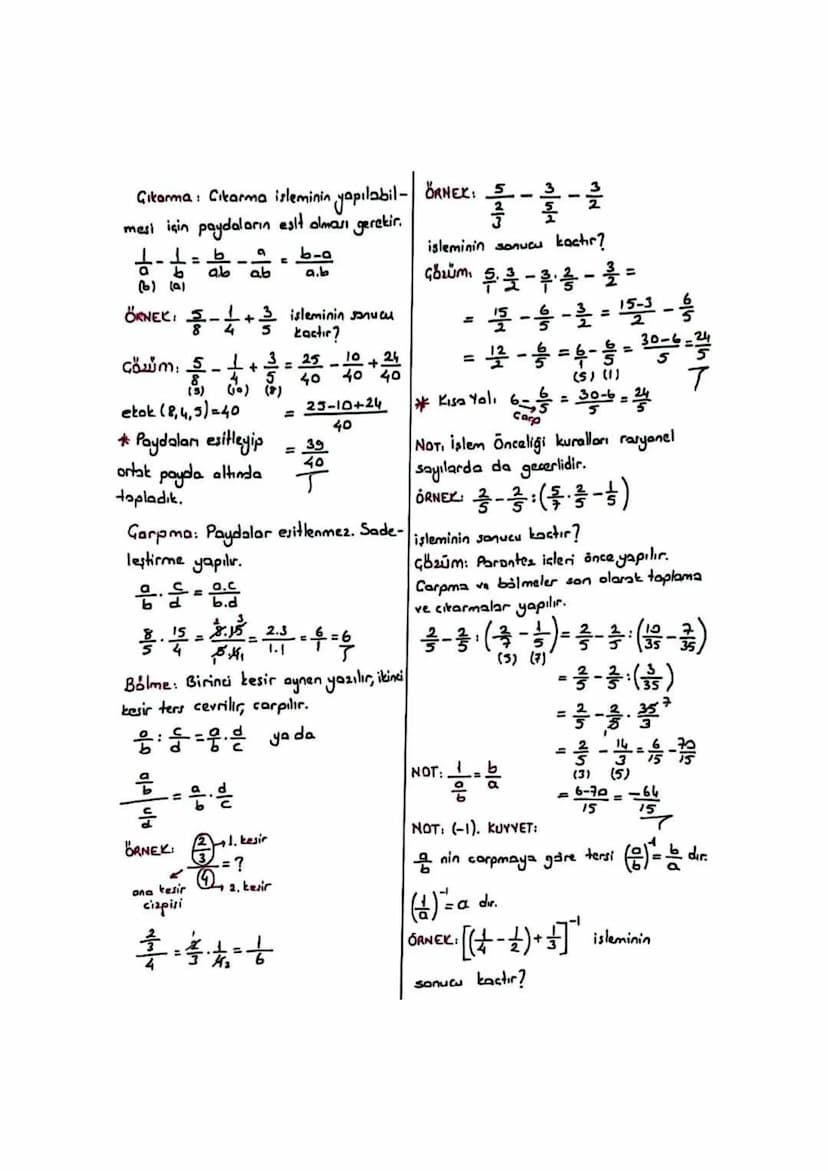 Çıkarma: Çıkarma işleminin yapılabil-
mesi için paydaların eşit olması gerekir.
1/a - 1/b = b/ab - a/ab = b-a/a.b
(b) (a)
ÖRNEK: 5/8 - 1/4 + 3/5 işleminin sonucu
kaçtır?
Çözüm: 5/8 - 1/4 + 3/5 = 25/40 - 10/40 + 24/40
(5) (10) (8)
ekok (8,4,5)=40 = 25-10+24/40
* Paydaları eşitleyip = 39/40
ortak payda altında
topladık.
Çarpma: Paydalar eşitlenmez. Sade-
leştirme yapılır.
a/b · c/d = a.c/b.d
8/5 · 15/4 = 8.15/5.4 = 2.3/1.1 = 6/1 = 6
Bölme: Birinci kesir aynen yazılır, ikinci
kesir ters çevrilir, çarpılır.
a/b : c/d = a/b · d/c ya da
(a/b)/(c/d) = a/b · d/c
ÖRNEK: (2/3)/4 = ?
→ 1. kesir
→ 2. kesir
ana kesir
çizgisi
(2/3)/4 = 2/3 · 1/4 = 1/6
ÖRNEK: 5/(2/3) - 3/(5/2) - 3/2
işleminin sonucu kaçtır?
Çözüm: 5/1 · 3/2 - 3/1 · 2/5 - 3/2 =
= 15/2 - 6/5 - 3/2 = 15-3/2 - 6/5
= 12/2 - 6/5 = 6/1 - 6/5 = 30-6/5 = 24/5
(5) (1)
* Kısa Yol: 6 - 6/5 = 30-6/5 = 24/5
Çarp
NOT: İşlem Önceliği kuralları rasyonel
sayılarda da geçerlidir.
ÖRNEK: 2/5 - 2/5 : (5/7 · 2/5 - 1/5)
işleminin sonucu kaçtır?
Çözüm: Parantez içleri önce yapılır.
Çarpma ve bölmeler son olarak toplama
ve çıkarmalar yapılır.
2/5 - 2/5 : (2/7 - 1/5) = 2/5 - 2/5 : (10/35 - 7/35)
(5) (7)
= 2/5 - 2/5 : (3/35)
= 2/5 - 2/5 · 35/3 7
= 2/5 - 14/3 = 6/15 - 70/15
(3) (5)
= 6-70/15 = -64/15
NOT: 1/(a/b) = b/a
NOT: (-1). KUVVET:
a/b nin çarpmaya göre tersi (a/b)⁻¹ = b/a dır.
(1/a)⁻¹ = a dır.
ÖRNEK: [(1/4 - 1/2) + 1/3]⁻¹ işleminin
sonucu kaçtır?